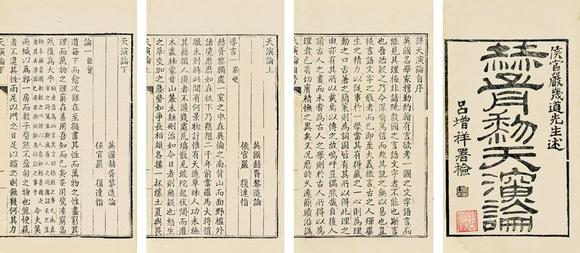 侯官嚴幾道先生述
赫胥黎天演論
呂增祥署檢
譯天演論自序
英國名學家穆勒約翰有言欲考一國之文字語言而
能見其理極非諳曉數國之言語文字者不能也斯言
也吾始疑之乃今深喻篤信而歎其說之無以易也豈
徒言語文字之散者而已即至大義微言古之人殫畢
生之精力以從事於一學當其有得藏之一心則為理
動之口舌著之簡策則為詞固皆有其所以得此理之
由亦有其所以載焉以傳之故嗚呼豈偶然哉自後人
讀古人之書而未嘗為古人之學則於古人所得以為
理者已有切膚精憮之異矣又況歷時久遠簡牘沿訛
天演論上
導言一 察變
英國赫胥黎造論
侯官嚴 復達恉
赫胥黎獨處一室之中在英倫之南背山而面野檻外
諸境歷歷如在几下乃懸想二千年前當羅馬大將愷
徹未到時此間有何景物計惟有天造草昧人功未施
其借徵人境者不過幾處荒墳散見坡陀起伏間而灌
木叢林蒙茸山麓未經刪治如今日者則無疑也怒生
之草交加之藤勢如爭長相雄各據一抔壤土夏與畏
天演論上
天演論下
論一 能實
英國赫胥黎造論
侯官嚴 復達恉
道每下而愈況雖在至微盡其性而萬物之性盡窮其
理而萬物之理窮在善用吾知而已矣安用騖遠窮高
然後為大乎
今夫筴
兩緘以為郛一房而數子瞀然不盈匊之物也然使蓺
者不違其性雨足以潤之日足以暄之則無幾何其力
天演論下